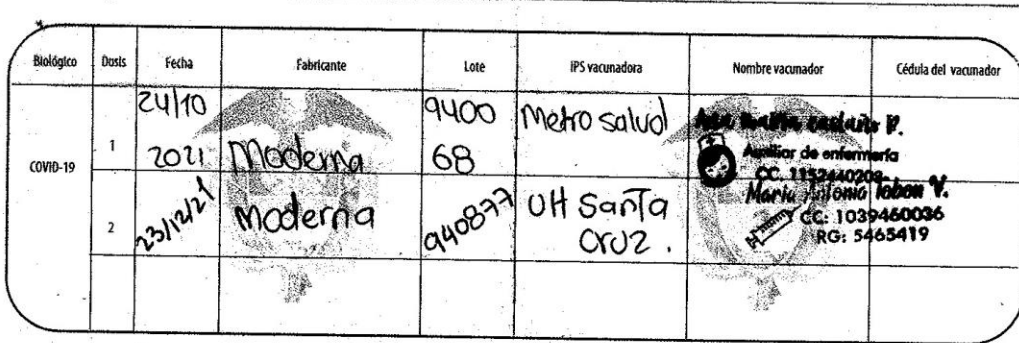 Biológico Dosis Fecha Fabricante Lote IPS vacunadora Nombre vacunador Cédula del vacunador
COVID-19
1
24/10
2021
Moderna
9400
68
Metro salud
Auxiliar de enfermería
CC. 1152440209
2
23/12/21
Moderna
940877
UH Santa
Cruz.
Maria Antonia Tobon V.
CC: 1039460036
RG: 5465419